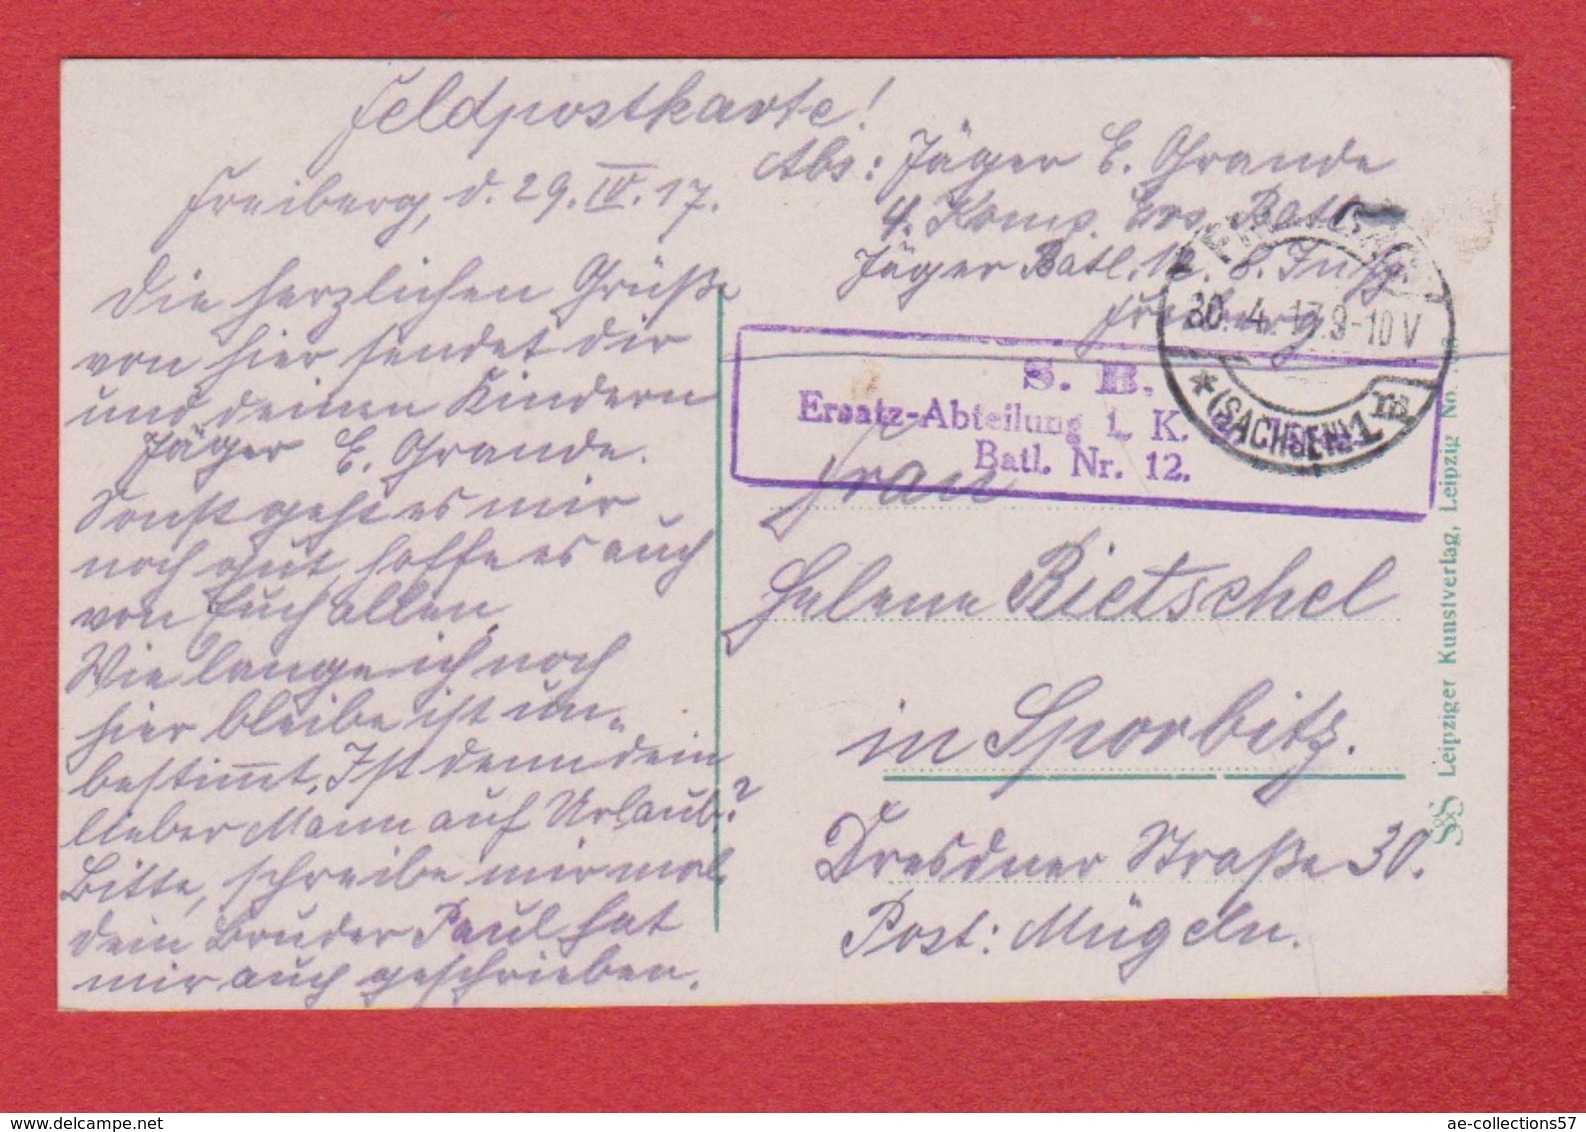 Feldpostkarte!
Freiberg, d. 29. IV. 17.
Die herzlichen Grüße
von hier sendet dir
und deinen Kindern
Jäger E. Grande.
Sonst geht es mir
noch gut, hoffe es auch
von Euch allen.
Wie lange ich noch
hier bleibe ist un-
bestimmt. Ist denn dein
lieber Mann auf Urlaub?
Bitte, schreibe mir mal
dein Bruder Paul hat
mir auch geschrieben.
Abs: Jäger E. Grande
4. Komp. Ers. Batl.
Jäger Batl. 12. 8.
Freiberg
30. 4. 17. 9-10 V
*(SACHSEN) 1
S. B.
Ersatz-Abteilung 1. K.
Batl. Nr. 12.
Frau
Helene Rietschel
in Sporbitz.
Dresdner Straße 30.
Post: Mügeln.
Leipziger Kunstverlag, Leipzig No.
ae-collections57